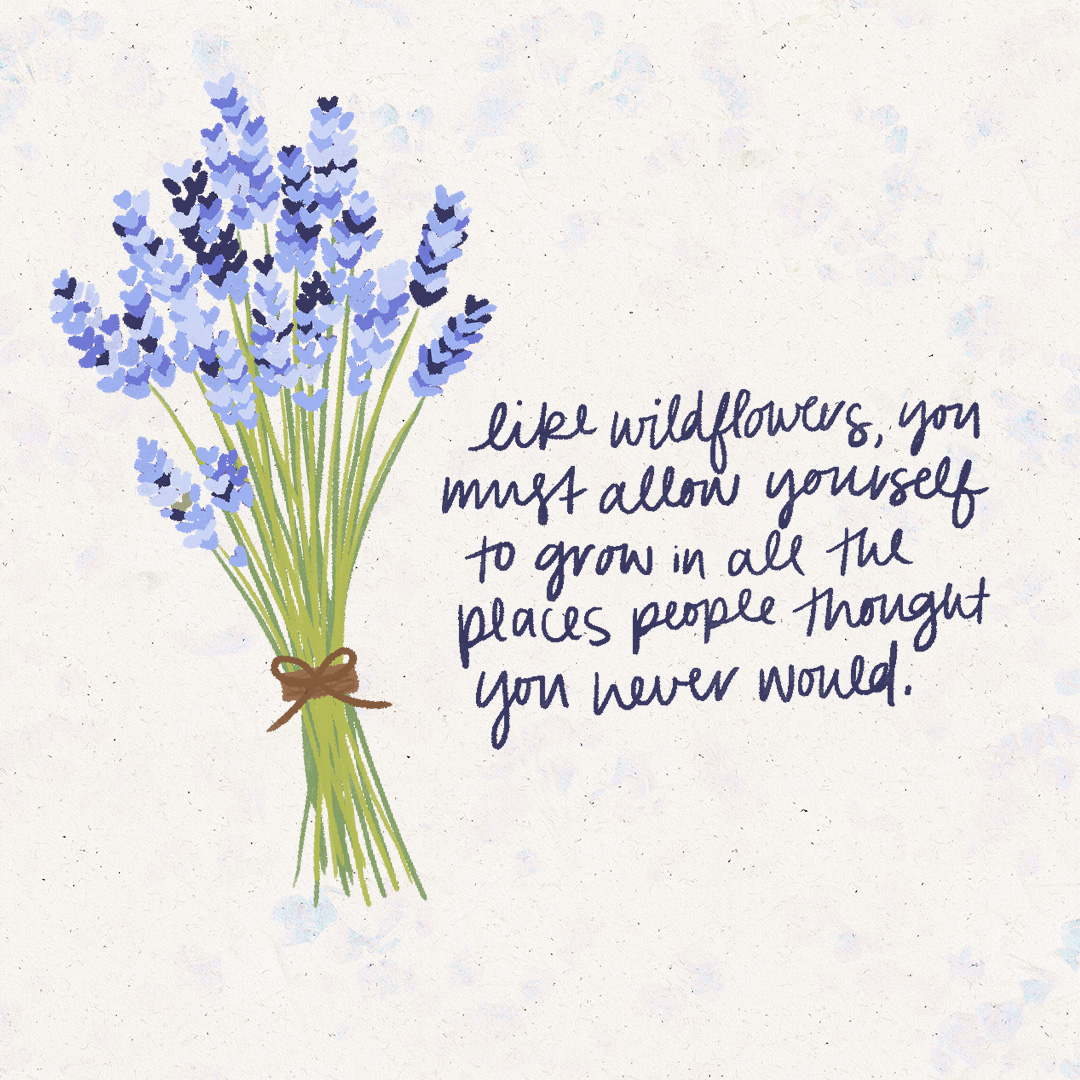 like wildflowers, you
must allow yourself
to grow in all the
places people thought
you never would.